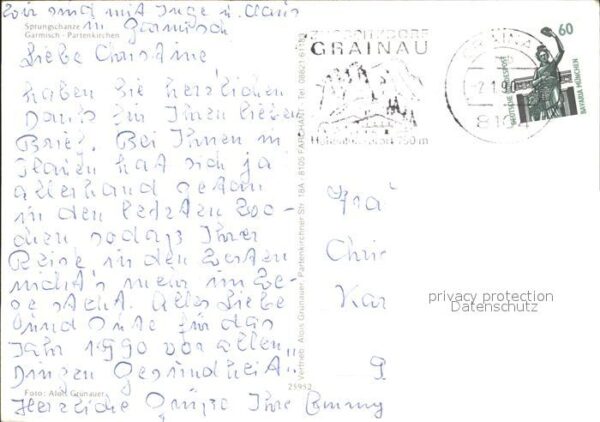 Wir sind mit Inge u. Claus
in Garmisch
Sprungschanze
Garmisch - Partenkirchen
Liebe Christine
haben Sie herzlichen
Dank für Ihren lieben
Brief. Bei Ihnen in
Plauen hat sich ja
allerhand getan
in den letzten Wo-
chen sodaß Ihrer
Reise in den Westen
nichts mehr im We-
ge steht. Alles Liebe
und Gute für das
Jahr 1990 vor allen
Dingen Gesundheit.
Herzliche Grüße Ihre Emmy
Foto: Alois Grunauer
25952
Vertrieb: Alois Grunauer, Partenkirchner Str. 18A · 8105 FARCHANT · Tel. 08821
ZUGSPITZDORF
GRAINAU
Höhenluftkurort 750 m
GRAINAU
-2.1.90
8104
60
DEUTSCHE BUNDESPOST
BAVARIA MÜNCHEN
Chris
Kar
privacy protection
Datenschutz